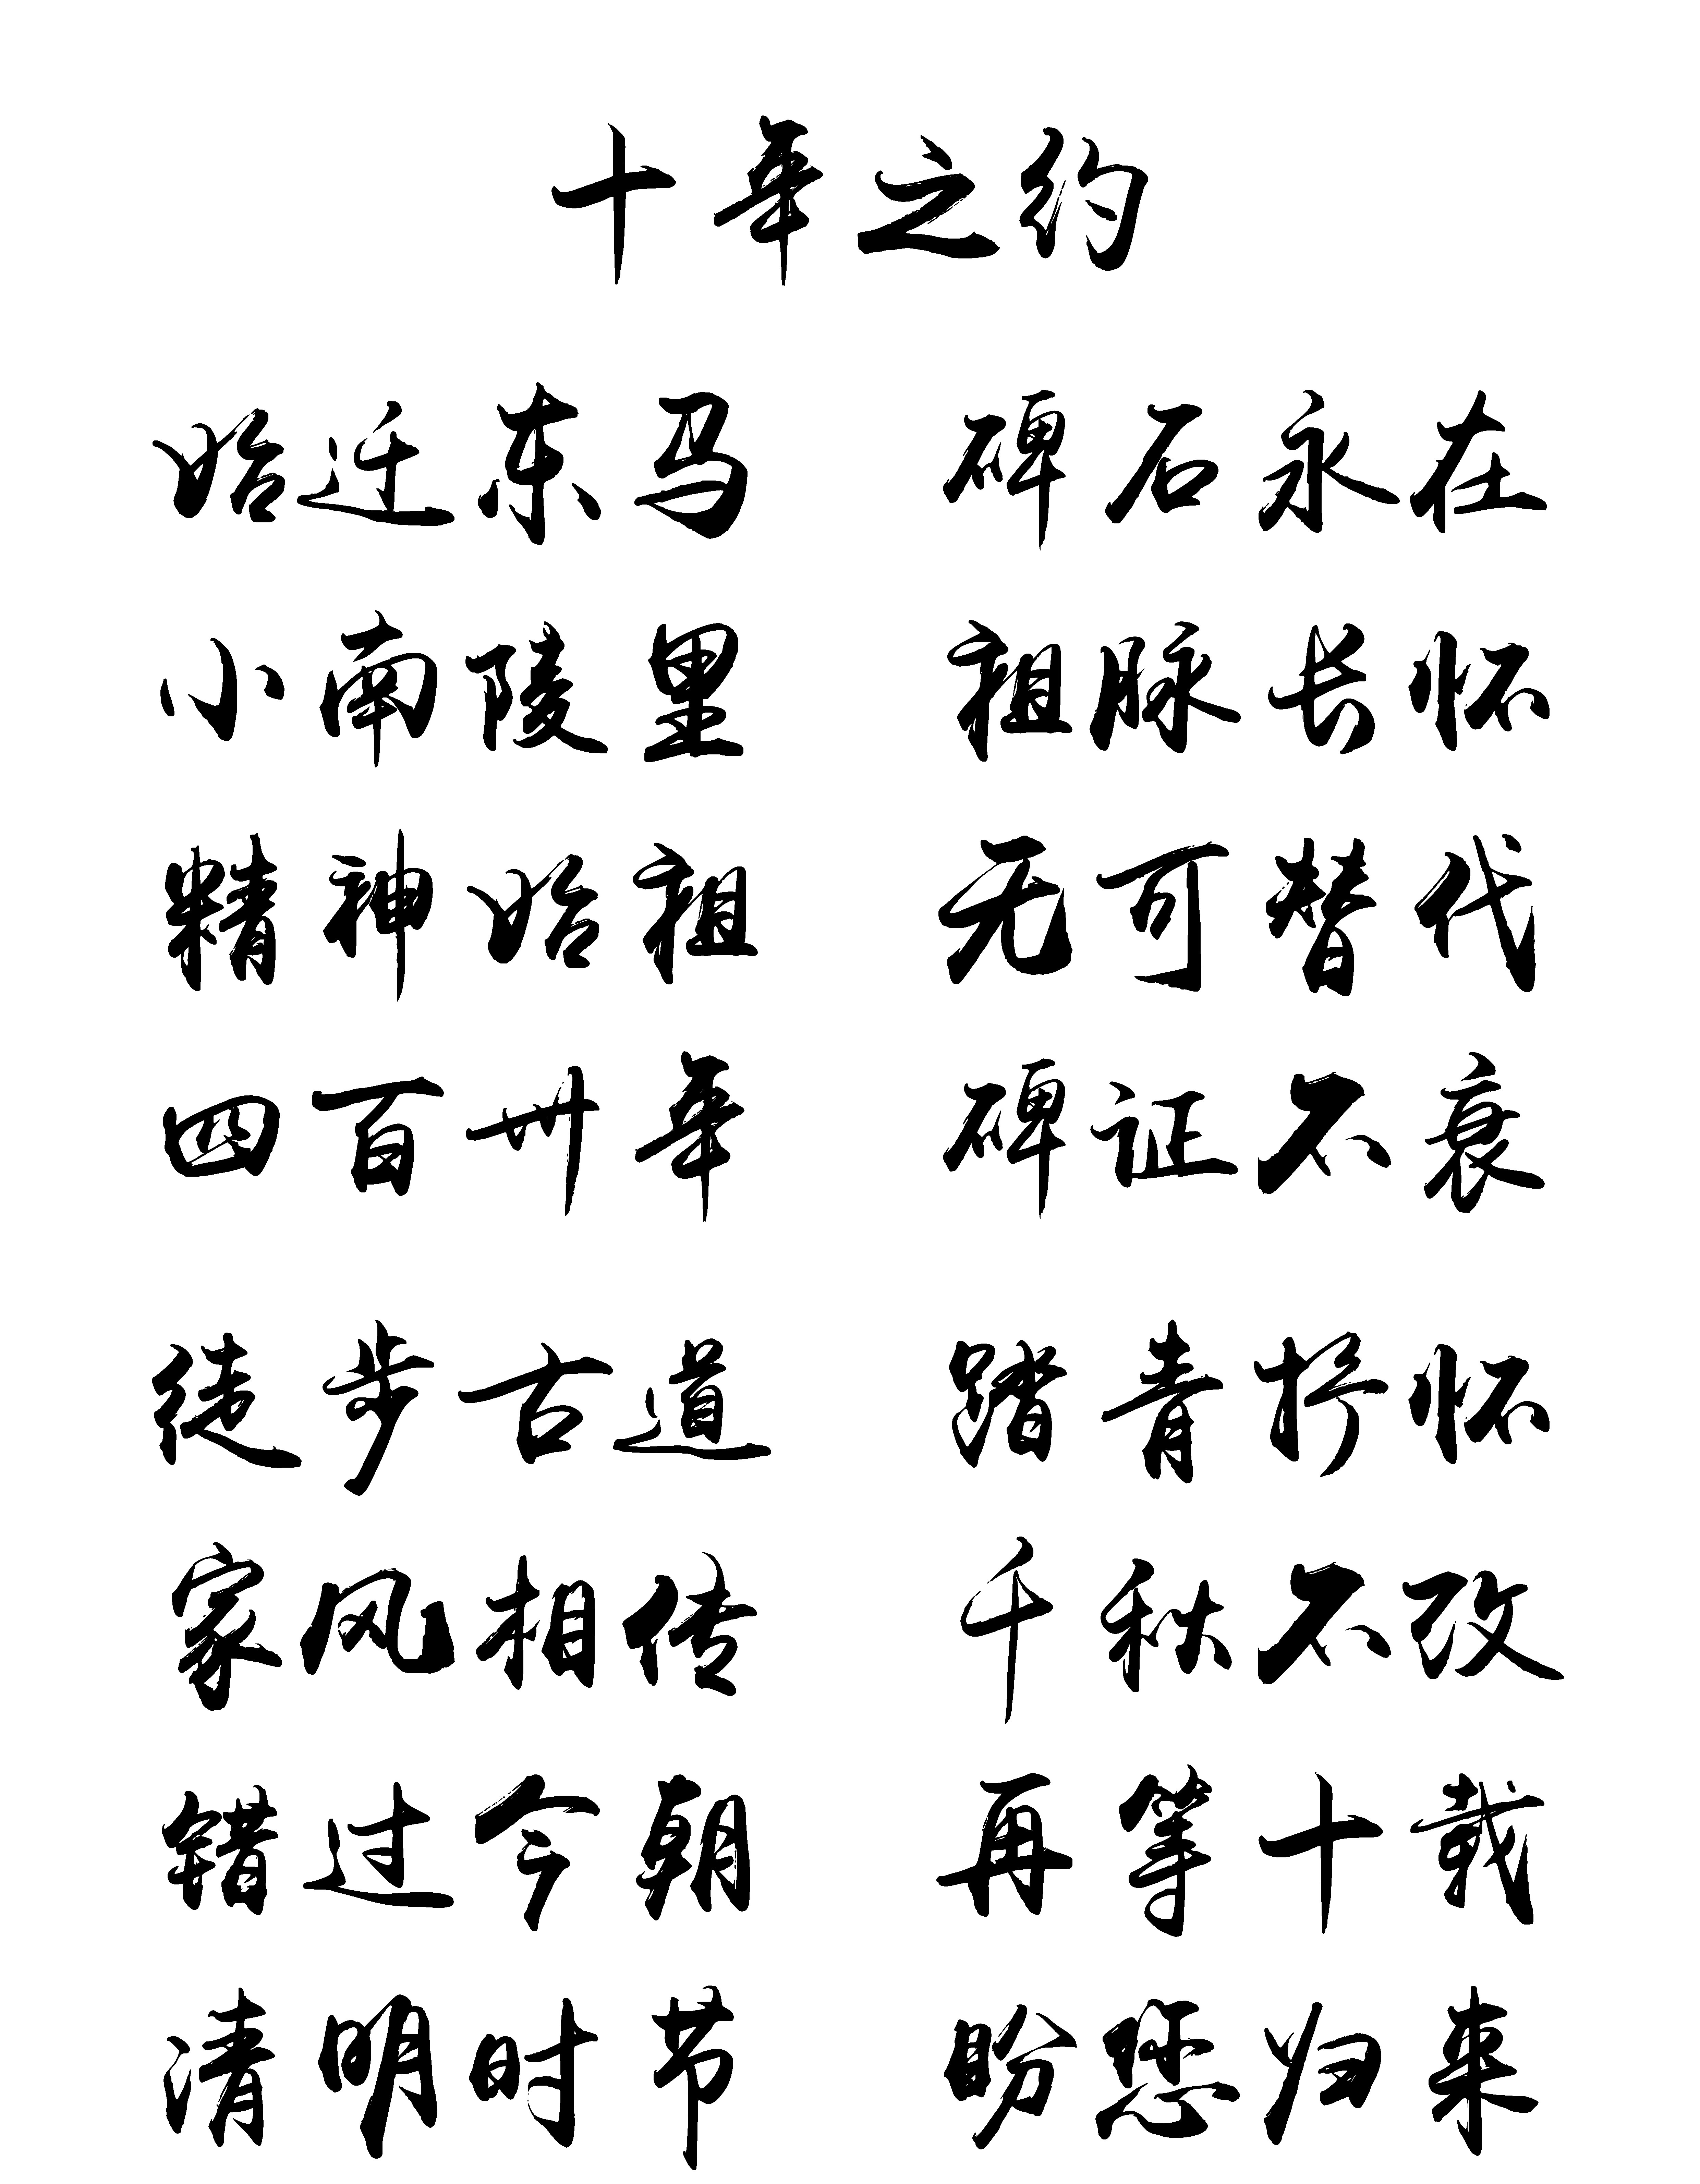 十年之约
始迁东马 碑石永在
小南陵里 祖脉长怀
精神始祖 无可替代
四百廿年 碑证不衰
徒步古道 踏青抒怀
家风相传 千秋不改
错过今朝 再等十载
清明时节 盼您归来